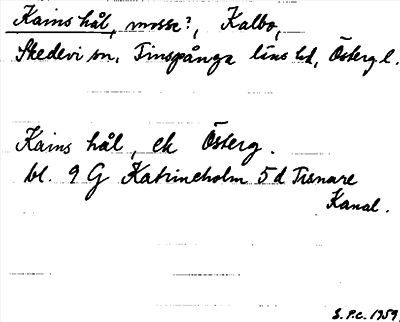 Kains hål, mosse?, Kalbo,
Skedevi sn, Finspånga läns hd, Östergl.
Kains hål, ek Österg.
bl. 9 G Katrineholm 5d Tisnare
Kanal.
S.P.C. 1959.